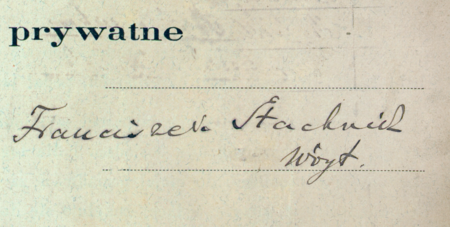 prywatne
Franciszek Stachnik
Wójt.